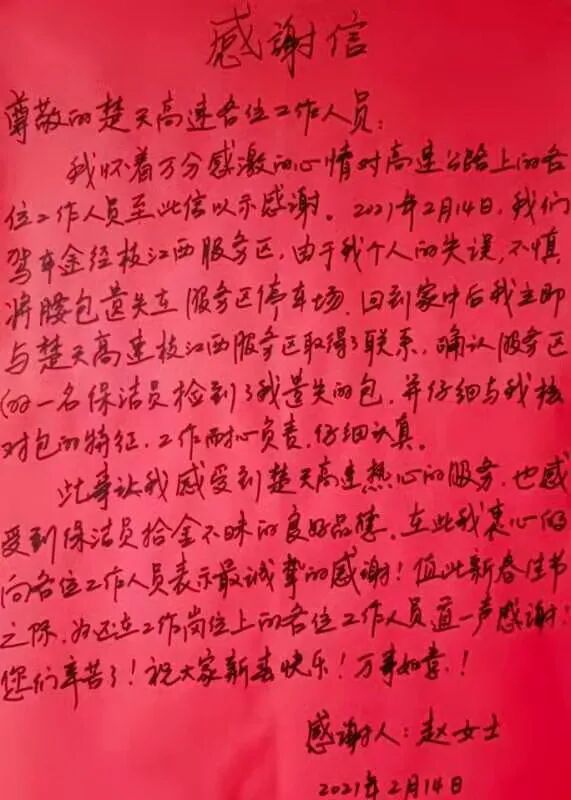 感谢信
尊敬的楚天高速各位工作人员：
我怀着万分感激的心情对高速公路上的各
位工作人员至此信以示感谢。2021年2月14日，我们
驾车途经枝江西服务区，由于我个人的失误，不慎
将腰包遗失在服务区停车场，回到家中后我立即
与楚天高速枝江西服务区取得了联系，确认服务区
的一名保洁员捡到了我遗失的包，并仔细与我核
对包的特征，工作耐心负责，仔细认真。
此事让我感受到楚天高速热心的服务，也感
受到保洁员拾金不昧的良好品德，在此我衷心的
向各位工作人员表示最诚挚的感谢！值此新春佳节
之际，为还在工作岗位上的各位工作人员道一声感谢！
您们辛苦了！祝大家新春快乐！万事如意！
感谢人：赵女士
2021年2月14日